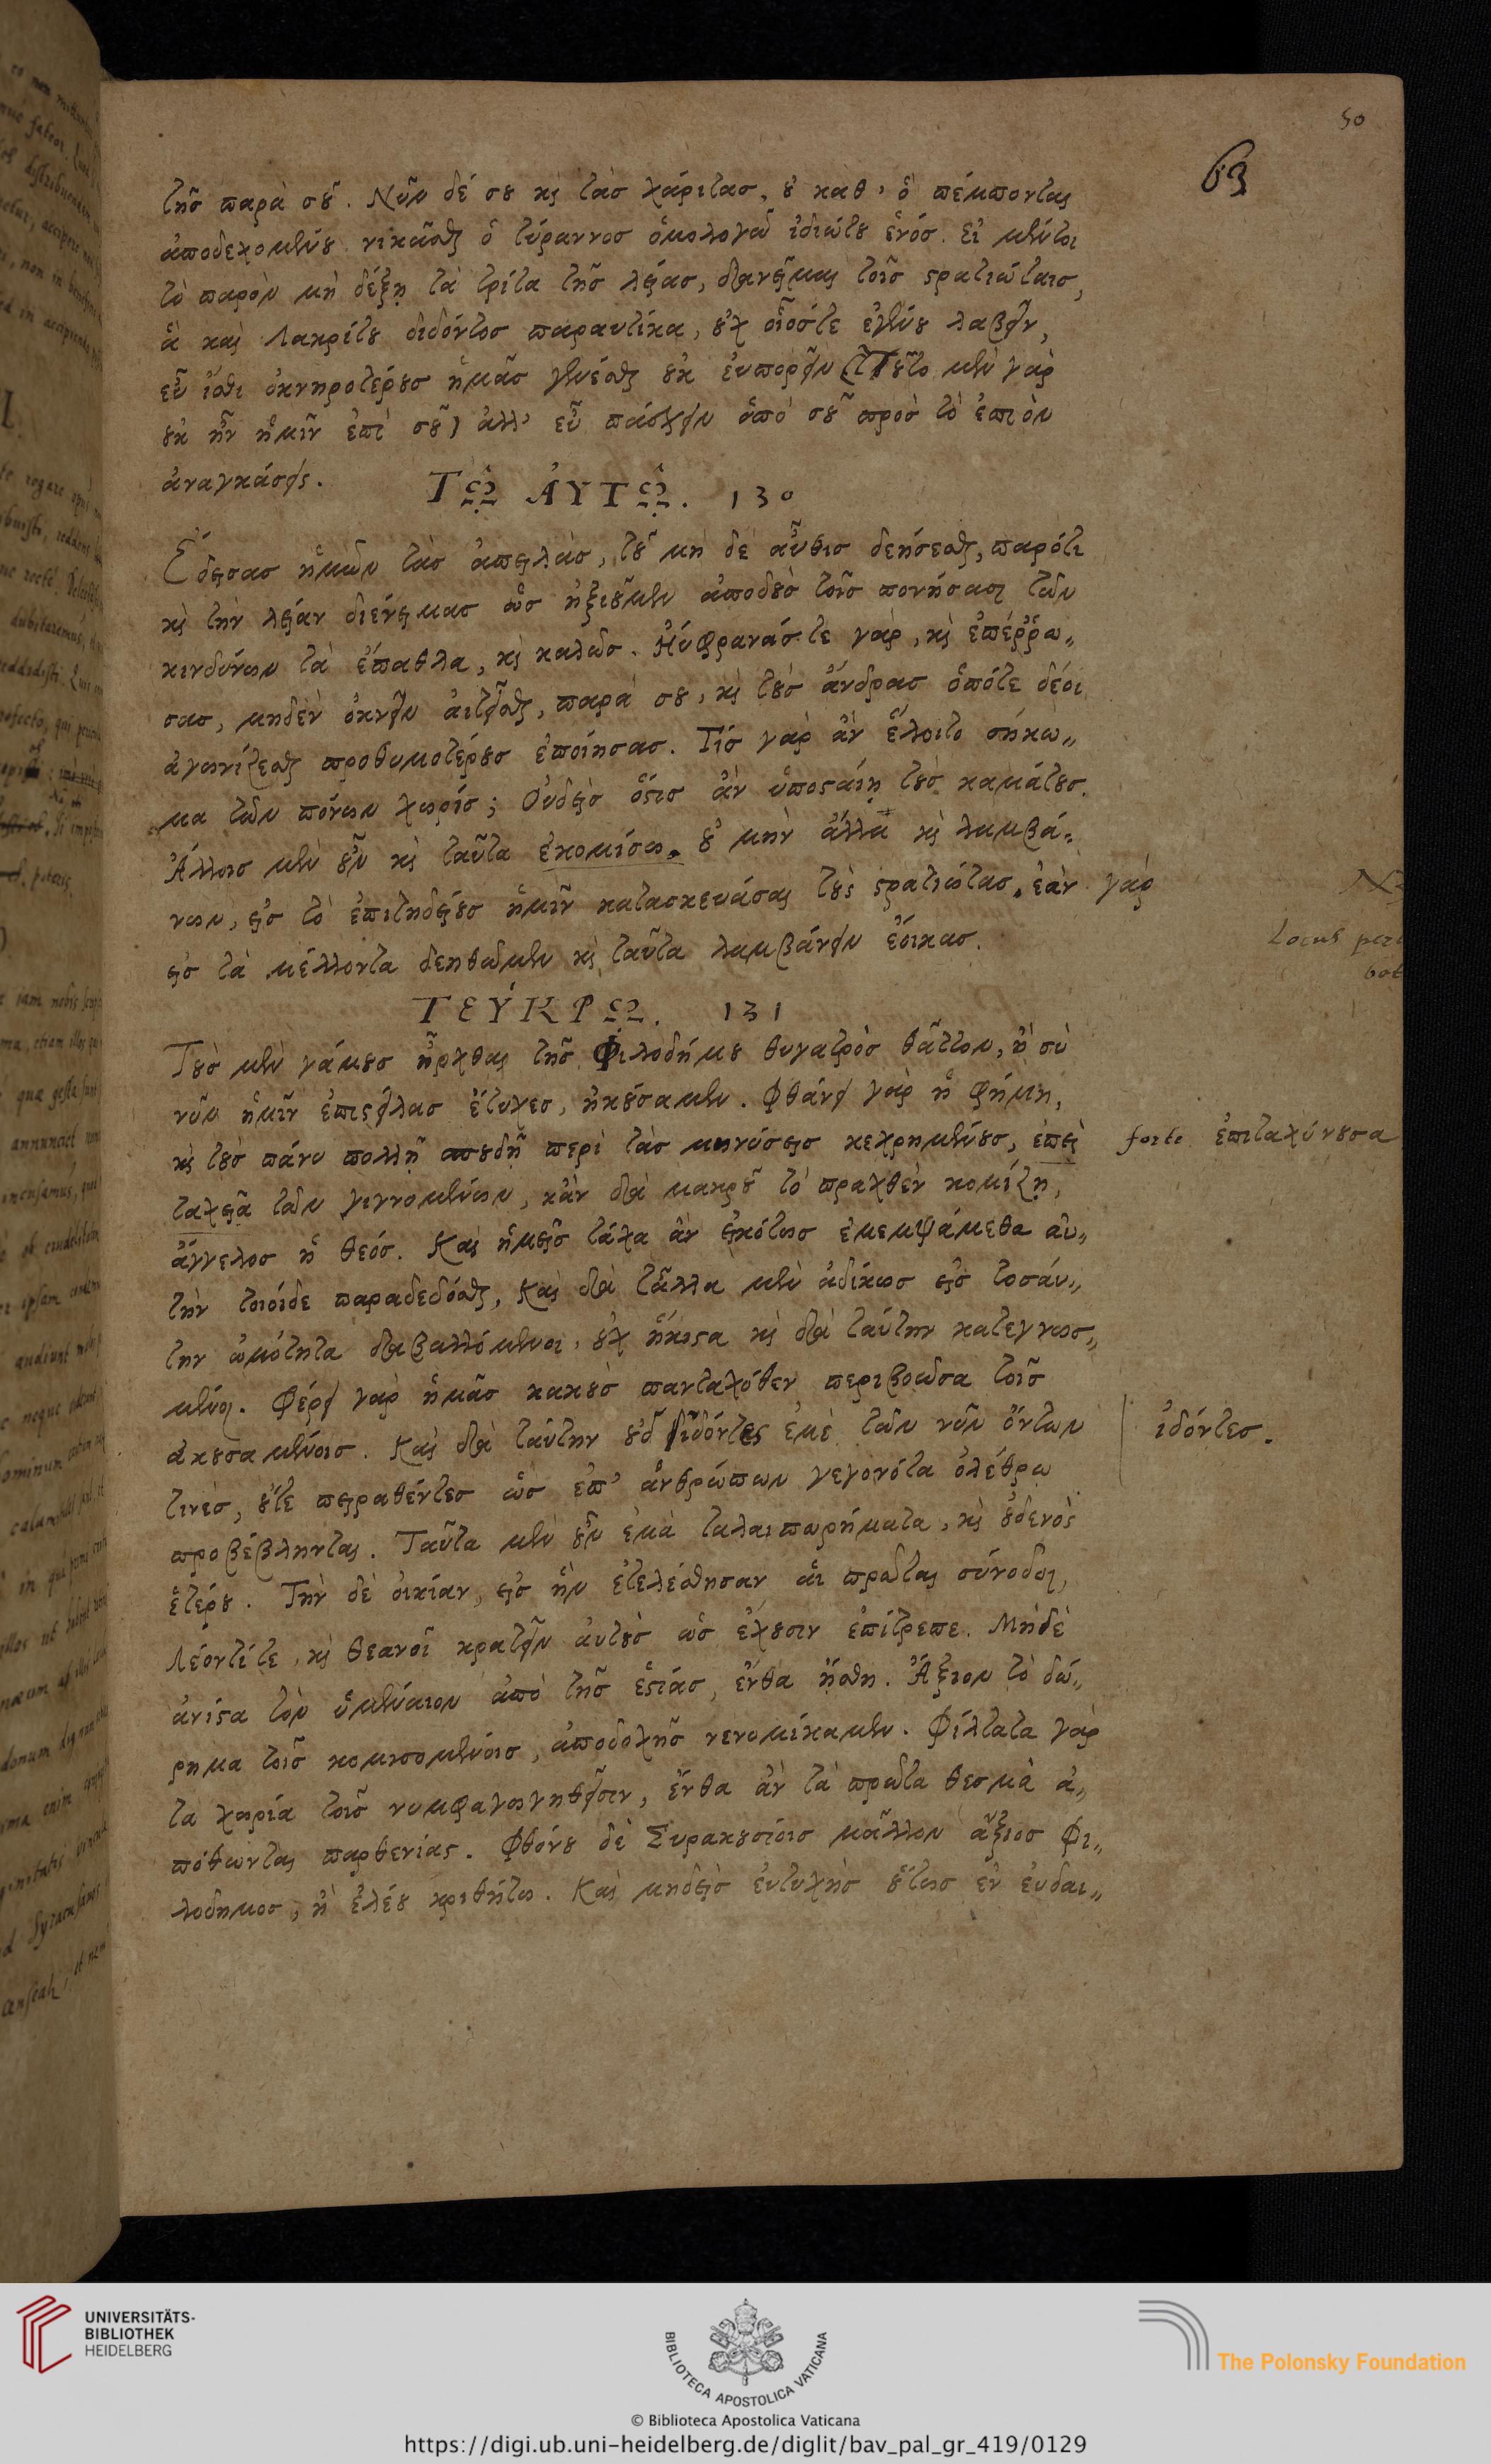 50
63
τῆς παρὰ σοῦ. Νῦν δέ σου καὶ τὰς χάριτας, οὐ καθ' ὃ πέμπονται
ἀποδεχομένου νικᾶσθαι ὁ τύραννος ὁμολογῶ ἰδιώτου ἑνός. εἰ μέντοι
τὸ παρὸν μὴ δέξῃ τὰ τρίτα τῆς λείας, διανεῖμαι τοῖς στρατιώταις,
ἃ καὶ Λακρίτου διδόντος παραυτίκα, οὐχ οἷόςτε ἐγένου λαβεῖν,
εὖ ἴσθι ὀκνηροτέρους ἡμᾶς γενέσθαι οὐκ εὐπορεῖν (Τοῦτο μὲν γὰρ
οὐκ ἦν ἡμῖν ἐπὶ σοῦ) ἀλλ' εὖ πάσχειν ὑπὸ σοῦ πρὸς τὸ ἐπιὸν
ἀναγκάσεις.
ΤΩ͂Ι ΑΥ̓ΤΩ͂Ι. 130
Ἔδεισας ἡμῶν τὰς ἀπειλὰς, τοῦ μὴ δὲ αὖθις δεήσεσθαι, παρότι
καὶ τὴν λείαν διένειμας ὡς ἠξιοῦμεν ἀποδοὺς τοῖς πονήσασι τῶν
κινδύνων τὰ ἔπαθλα, καὶ καλῶς. Ηὔφρανάς τε γὰρ, καὶ ἐπέῤῥω„
σας, μηδὲν ὀκνεῖν αἰτεῖσθαι, παρά σου, καὶ τοὺς ἄνδρας ὁπότε δέοι
ἀγωνίζεσθαι προθυμοτέρους ἐποίησας. Τίς γὰρ ἂν ἕλοιτο σήκω„
μα τῶν πόνων χωρίς; Οὐδεὶς ὅστις ἂν ὑποσταίη τοὺς καμάτους.
Ἄλλοις μὲν οὖν καὶ ταῦτα ἐκομίσω. οὐ μὴν ἀλλὰ καὶ λαμβά„
νων, εἰς τὸ ἐπιτηδείους ἡμῖν κατασκευάσαι τοὺς στρατιώτας, ἐὰν γὰρ
εἰς τὰ μέλλοντα δεηθῶμεν καὶ ταῦτα λαμβάνειν ἔοικας.
Locus
ΤΕΎΚΡΩΙ. 131
Τοὺς μὲν γάμους ἦρχθαι τῆς Φιλοδήμου θυγατρὸς θᾶττον, ἢ σὺ
νῦν ἡμῖν ἐπιστείλας ἔτυχες, ἠκούσαμεν. Φθάνει γὰρ ἡ φήμη,
καὶ τοὺς πάνυ πολλῇ σπουδῇ περὶ τὰς μηνύσεις κεχρημένους, ἐπεὶ
forte ἐπιταχύνουσα
ταχεῖα τῶν γιγνομένων, κἂν διὰ μακροῦ τὸ πραχθὲν κομίζῃ,
ἄγγελος ἡ θεός. Καὶ ἡμεῖς τάχα ἂν εἰκότως ἐμεμψάμεθα αὐ„
τὴν τοιοίδε παραδεδόσθαι, Καὶ διὰ τἄλλα μὲν ἀδίκως εἰς τοσαύ„
την ὠμότητα διαβαλλόμενοι, οὐχ ἥκιστα καὶ διὰ ταύτην κατεγνωσ„
μένοι. Φέρει γὰρ ἡμᾶς κακοὺς πανταχόθεν περιβοῶσα τοῖς
ἀκουσαμένοις. Καὶ διὰ ταύτην οὐδ' εἰδότες ἐμὲ τῶν νῦν ὄντων
ἰδόντες.
τινὲς, οὔτε πειραθέντες ὡς ἐπ' ἀνθρώπων γεγονότα ὀλέθρῳ
προβέβληνται. Ταῦτα μὲν οὖν ἐμὰ ταλαιπωρήματα, καὶ οὐδενὸς
ἑτέρου. Τὴν δὲ οἰκίαν, εἰς ἣν ἐτελέσθησαν αἱ πρῶται σύνοδοι,
Λέοντί τε, καὶ Θεανοῖ κρατεῖν αὐτοὺς ὡς ἔχουσιν ἐπίτρεπε. Μηδὲ
ἀνίστα τὸν ὑμέναιον ἀπὸ τῆς ἑστίας, ἔνθα ᾔσθη. Ἄξιον τὸ δώ„
ρημα τοῖς κομισομένοις, ἀποδοχῆς νενομίκαμεν. Φίλτατα γὰρ
τὰ χωρία τοῖς νυμφαγωγηθεῖσιν, ἔνθα ἂν τὰ πρῶτα θεσμὰ ἀ„
πόθωνται παρθενίας. Φθόνου δὲ Συρακουσίοις μᾶλλον ἄξιος Φι„
λοδημος, ἢ ἐλέου κριθήτω. Καὶ μηδεὶς εὐτυχὴς οὕτως ἐν εὐδαι„
UNIVERSITÄTS-
BIBLIOTHEK
HEIDELBERG
BIBLIOTECA APOSTOLICA VATICANA
The Polonsky Foundation
© Biblioteca Apostolica Vaticana
https://digi.ub.uni-heidelberg.de/diglit/bav_pal_gr_419/0129